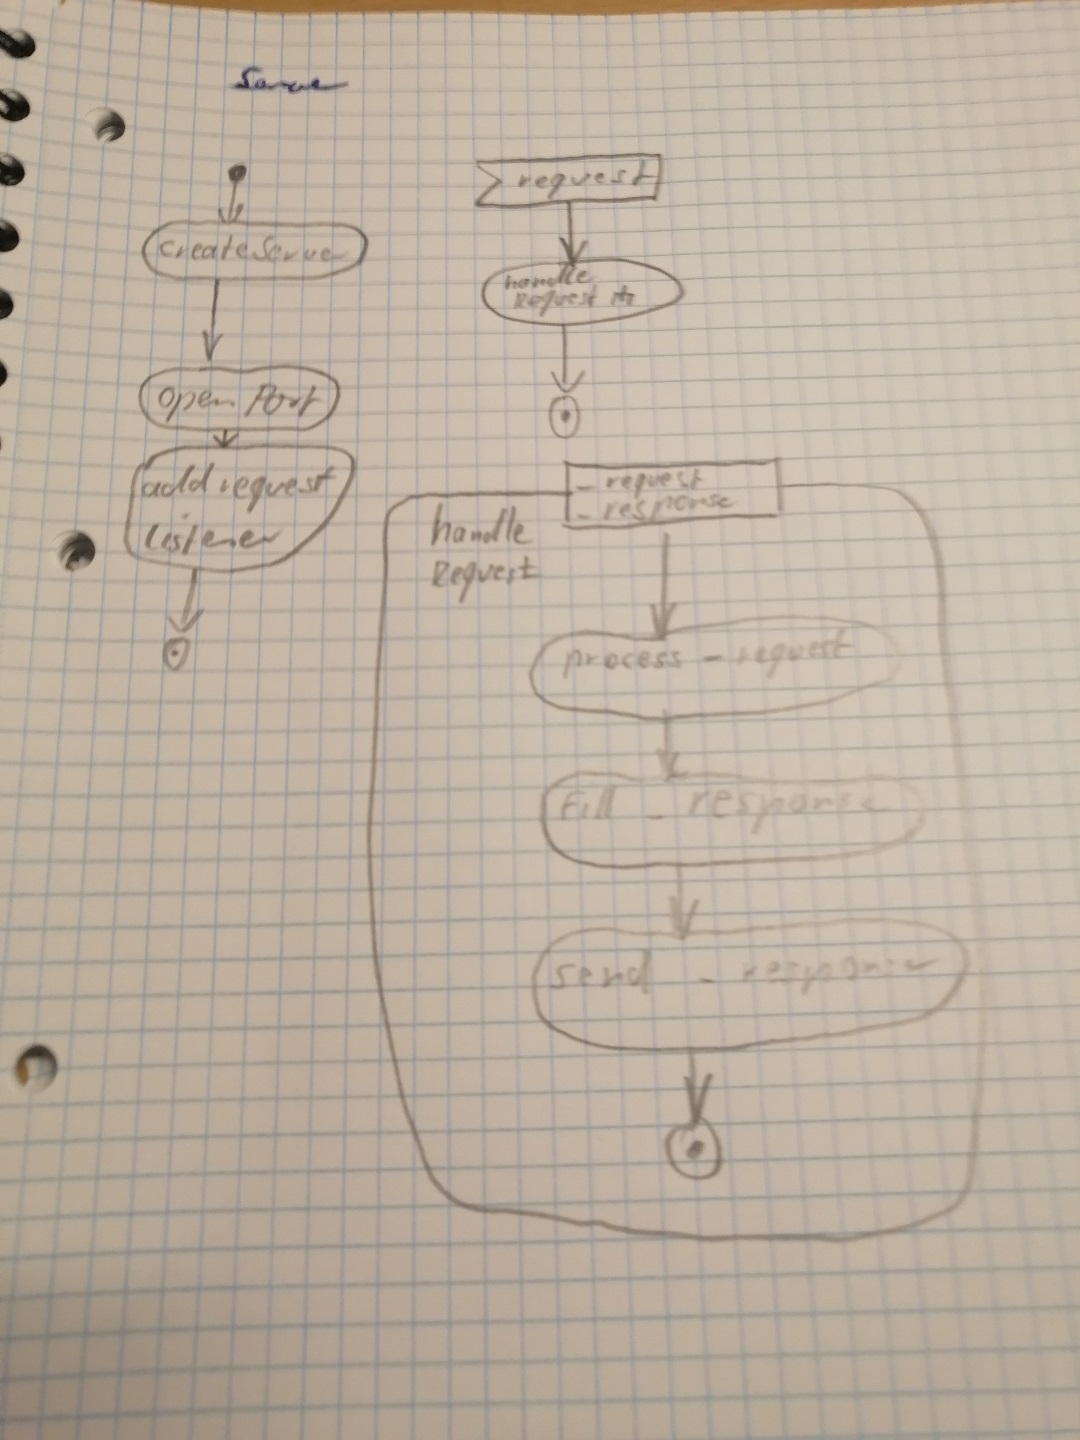 Server
createServer
open Port
add request
Listener
request
handle
Request
- request
- response
handle
Request
process - request
Fill - response
send - response